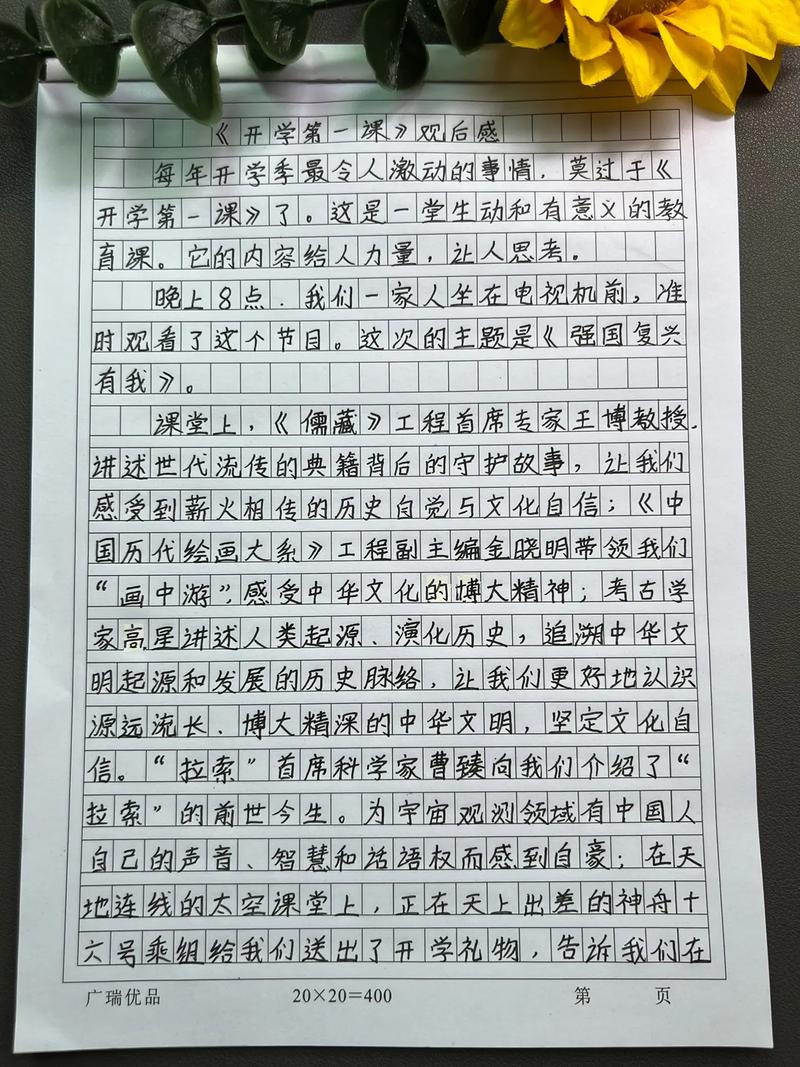 《开学第一课》观后感
每年开学季最令人激动的事情，莫过于《
开学第一课》了。这是一堂生动和有意义的教
育课。它的内容给人力量，让人思考。
晚上8点，我们一家人坐在电视机前，准
时观看了这个节目。这次的主题是《强国复兴
有我》。
课堂上，《儒藏》工程首席专家王博教授，
讲述世代流传的典籍背后的守护故事，让我们
感受到薪火相传的历史自觉与文化自信；《中
国历代绘画大系》工程副主编金晓明带领我们
“画中游”，感受中华文化的博大精神；考古学
家高星讲述人类起源、演化历史，追溯中华文
明起源和发展的历史脉络，让我们更好地认识
源远流长、博大精深的中华文明，坚定文化自
信。“拉索”首席科学家曹臻向我们介绍了“
拉索”的前世今生。为宇宙观测领域有中国人
自己的声音、智慧和话语权而感到自豪；在天
地连线的太空课堂上，正在天上出差的神舟十
六号乘组给我们送出了开学礼物，告诉我们在
广瑞优品 20×20=400 第 页